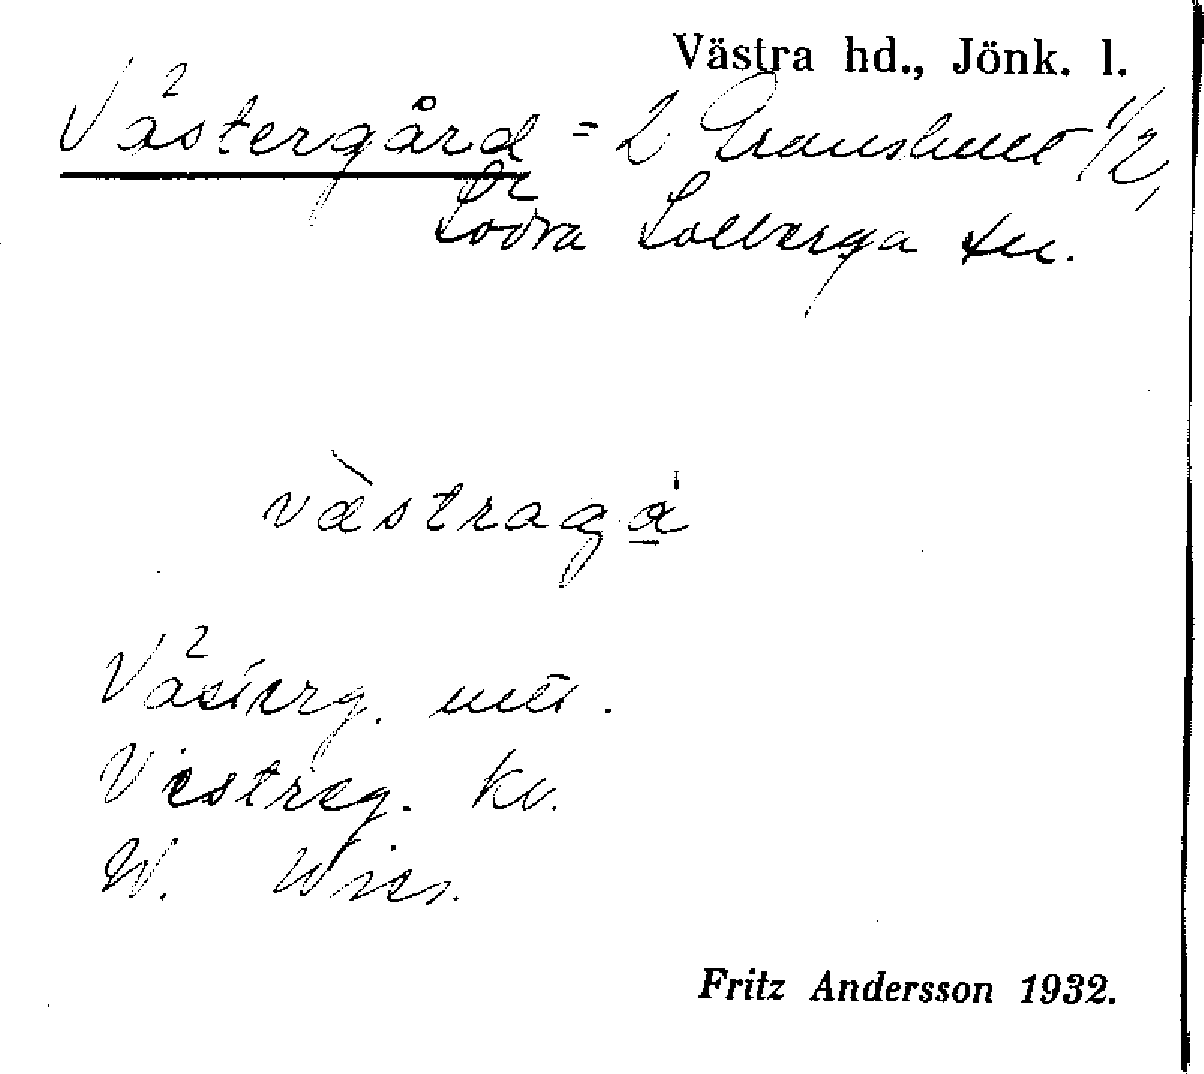 Västra hd., Jönk. l.
Västergård = 2 Granshult 1/2,
Södra Solberga sn.
västragå
Västerg.
Vestreg. kv.
W. Wies.
Fritz Andersson 1932.